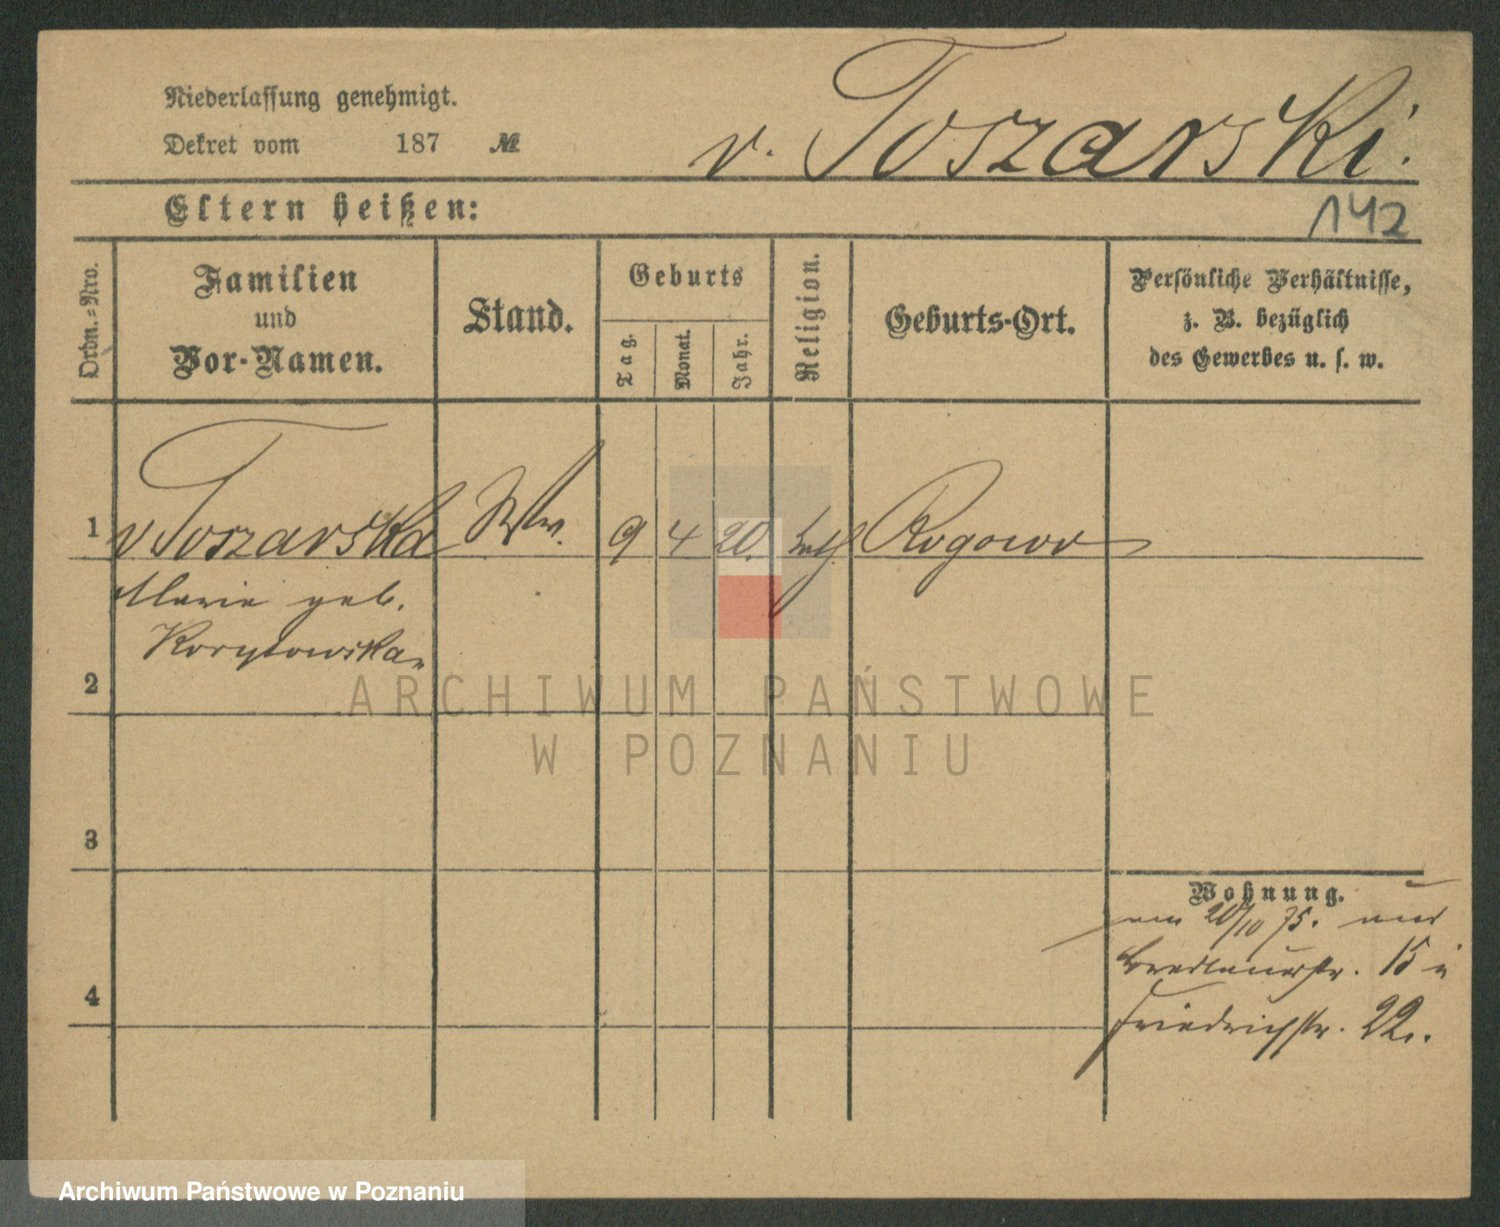 Niederlassung genehmigt.
Dekret vom 187 №
v. Toszarski.
Eltern heißen:
142
Ordn.=Nro.
Familien
und
Vor-Namen.
Stand.
Geburts
Tag.
Monat.
Jahr.
Religion.
Geburts-Ort.
Persönliche Verhältnisse,
z. B. bezüglich
des Gewerbes u. s. w.
1 v Toszarska Ww. 9 4 20. kath Rogowo
Marie geb.
Korytowska
2
3
4
Wohnung.
am 20/10 75. aus
Breslauerstr. 15 in
Friedrichstr. 22.
ARCHIWUM PAŃSTWOWE
W POZNANIU
Archiwum Państwowe w Poznaniu